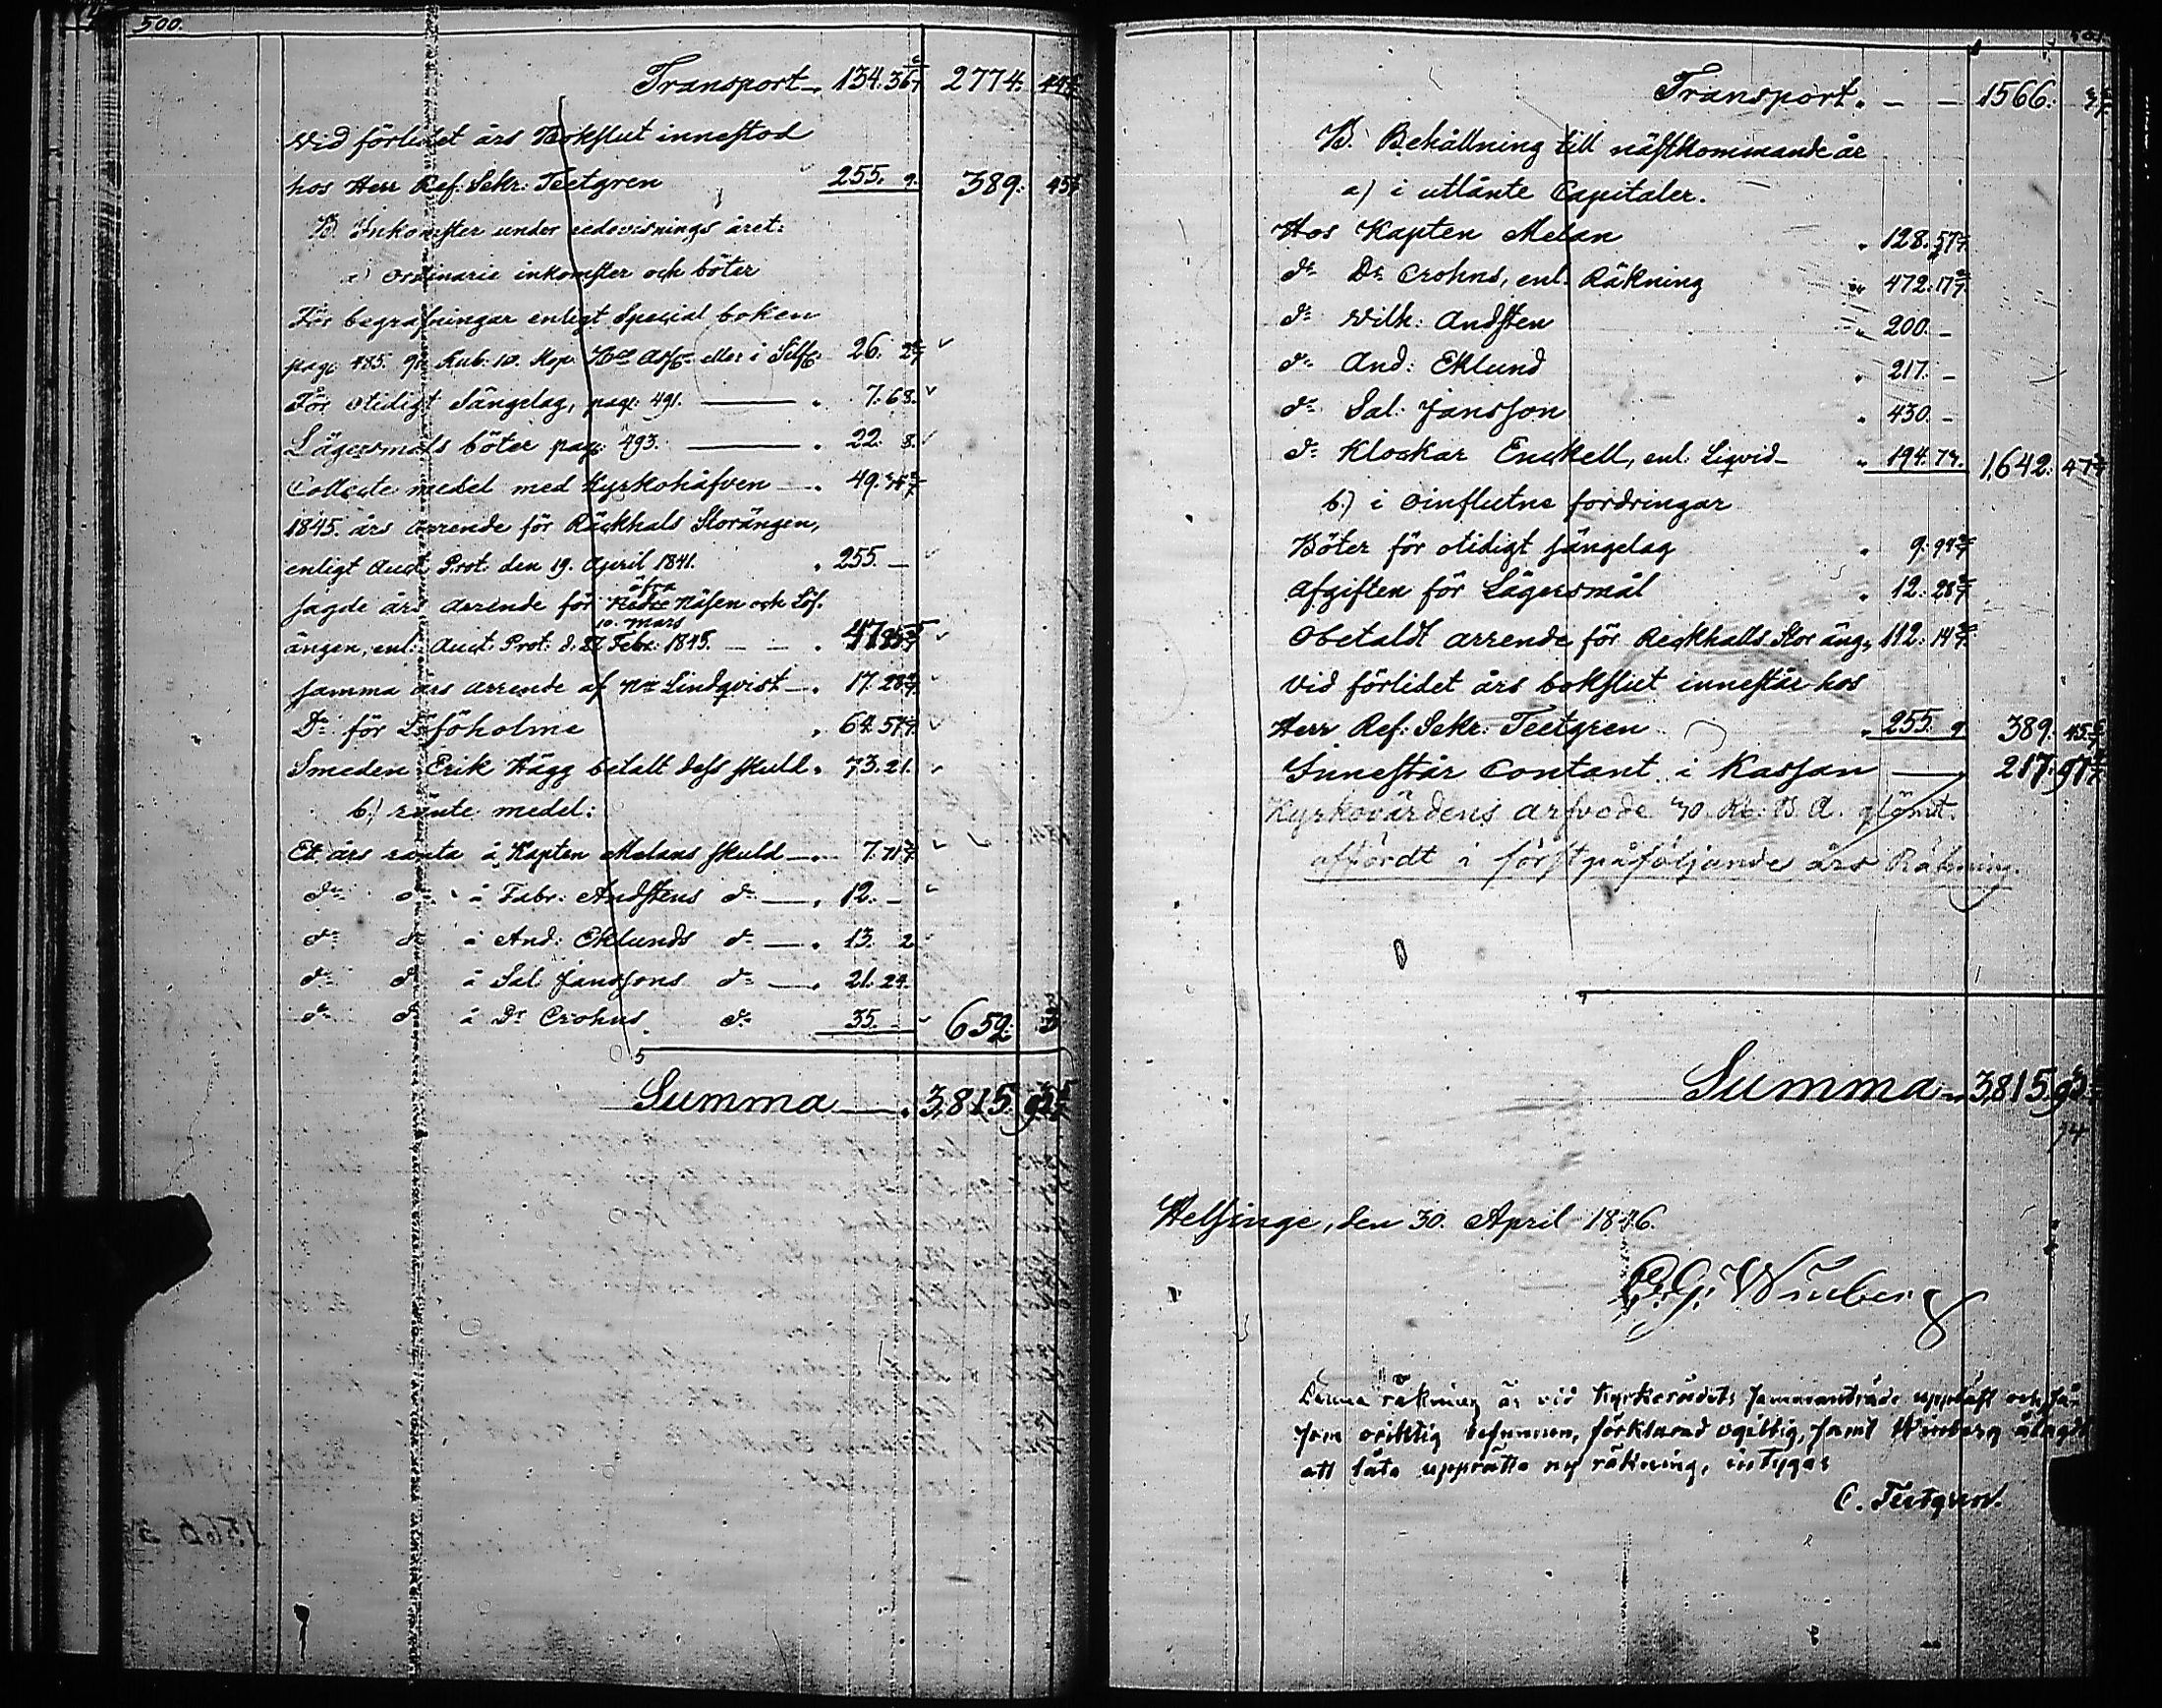 500.
Transport 134.36 2774.
vid förlidet års Bokslut innestod
hos Herr Ref: Sekr: Teetgren 255. 9. 389: 45
B. Inkomster under redovisnings året:
a) ordinarie inkomster och böter
För begrafningar enligt Special boken
pag: 485. 91 Rub: 10. Kop. eller i Silf: 26.
För otidigt Sängelag, pag: 491. 7.68.
Lägersmåls böter pag: 493. 22. 8.
Collecte medel med Kyrkohåfven 49.
1845. års arrende för Räckhals Storängen,
enligt Auct. Prot: den 19. April 1841. 255. —
sagde års arrende för öfra Näsen och Löf-
10. Mars
ängen, enl: Auct: Prot: d. Febr: 1845.
samma års arrende af Lindqvist 17. 28
Do för Löföholme 64. 57
Smeden Erik Hägg betalt dess skuld 73.21.
b.) ränte medel:
Et års ränta å Kapten Melans skuld 7. 71
do do å Fabr: Andstens do 12. —
do do å And: Eklunds do 13. 2
do do å Sal Janssons do 21. 24.
do do å Dr Crohns do 35. — 659: 3
Summa 3,815. 93
Transport. — — 1566.
B. Behållning till nästkommande år
a) i utlånte Capitaler.
Hos Kapten Melan 128. 57
do Dr Crohns, enl. Räkning 472. 17
do Wilh: Andsten 200. —
do And: Eklund 217. —
do Sal: Jansson 430. —
do Klockar Enckell, enl: Liqvid 194. 1,642: 47
b.) i oinflutne fordringar
Böter för otidigt sängelag 9.
afgiften för Lägersmål 12. 28
obetaldt arrende för Reckhalls Stor äng 112. 14
vid förlidet års bokslut innestår hos
Herr Ref: Sekr: Teetgren 255. 9 389. 45
Innestår contant i Kassan 217. 97
Kyrkovärdens arfvode Rb. B. A. glömt.
affördt i förstpåföljande års Räkning.
Summa 3,815. 93
Helsinge, den 30. April 1846.
G. Winberg
Denna räkning är vid Kyrkorådets sammanträde uppläst och så-
som oriktig befunnen, förklarad ogiltig, samt Winberg ålagdt
att låta upprätta ny räkning, intygar
C. Teetgren.